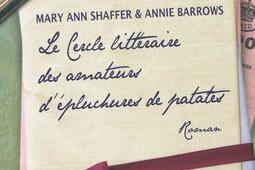 MARY ANN SHAFFER & ANNIE BARROWS
Le Cercle littéraire
des amateurs
d'épluchures de patates
Roman